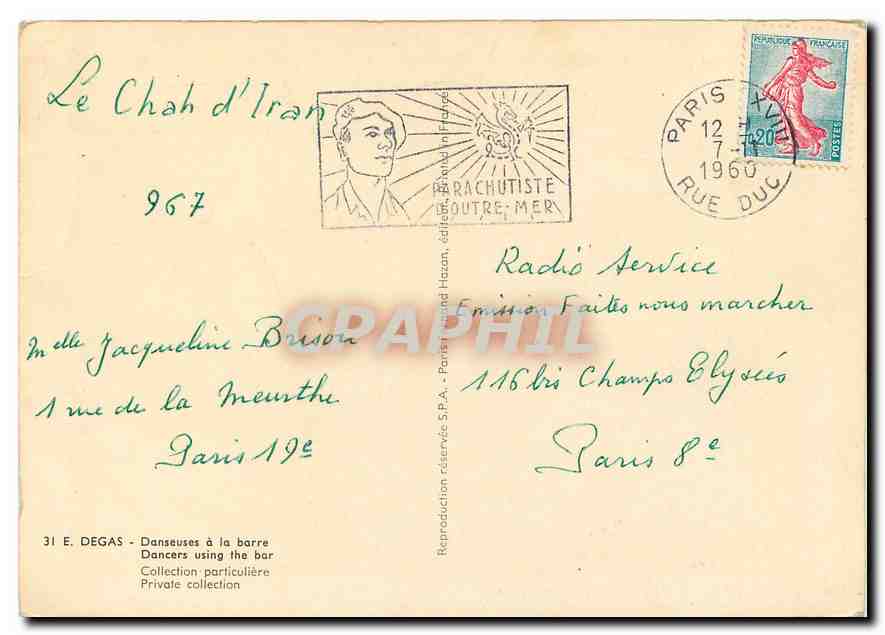 Le Chah d'Iran
967
Melle Jacqueline Brison
1 rue de la Meurthe
Paris 19e
31 E. DEGAS - Danseuses à la barre
Dancers using the bar
Collection particulière
Private collection
Reproduction réservée S.P.A. - Paris Fernand Hazan, éditeur. Printed in France
PARACHUTISTE
D'OUTRE-MER
PARIS XVIII
12 H
7-11
1960
RUE DUC
REPUBLIQUE FRANÇAISE
0,20
POSTES
Radio Service
Emission Faites nous marcher
116 bis Champs Elysées
Paris 8e
CPAPHIL